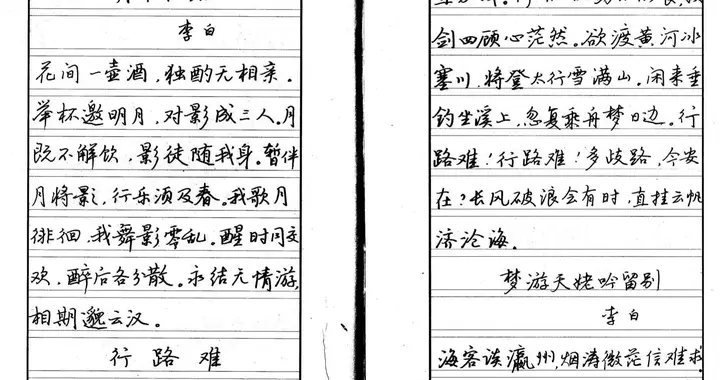 李白
花间一壶酒，独酌无相亲．
举杯邀明月，对影成三人。月
既不解饮，影徒随我身。暂伴
月将影，行乐须及春。我歌月
徘徊，我舞影零乱。醒时同交
欢，醉后各分散。永结无情游，
相期邈云汉。
行路难
剑四顾心茫然。欲渡黄河冰
塞川，将登太行雪满山。闲来垂
钓坐溪上，忽复乘舟梦日边。行
路难！行路难！多歧路，今安
在？长风破浪会有时，直挂云帆
济沧海。
梦游天姥吟留别
李白
海客谈瀛州，烟涛微茫信难求